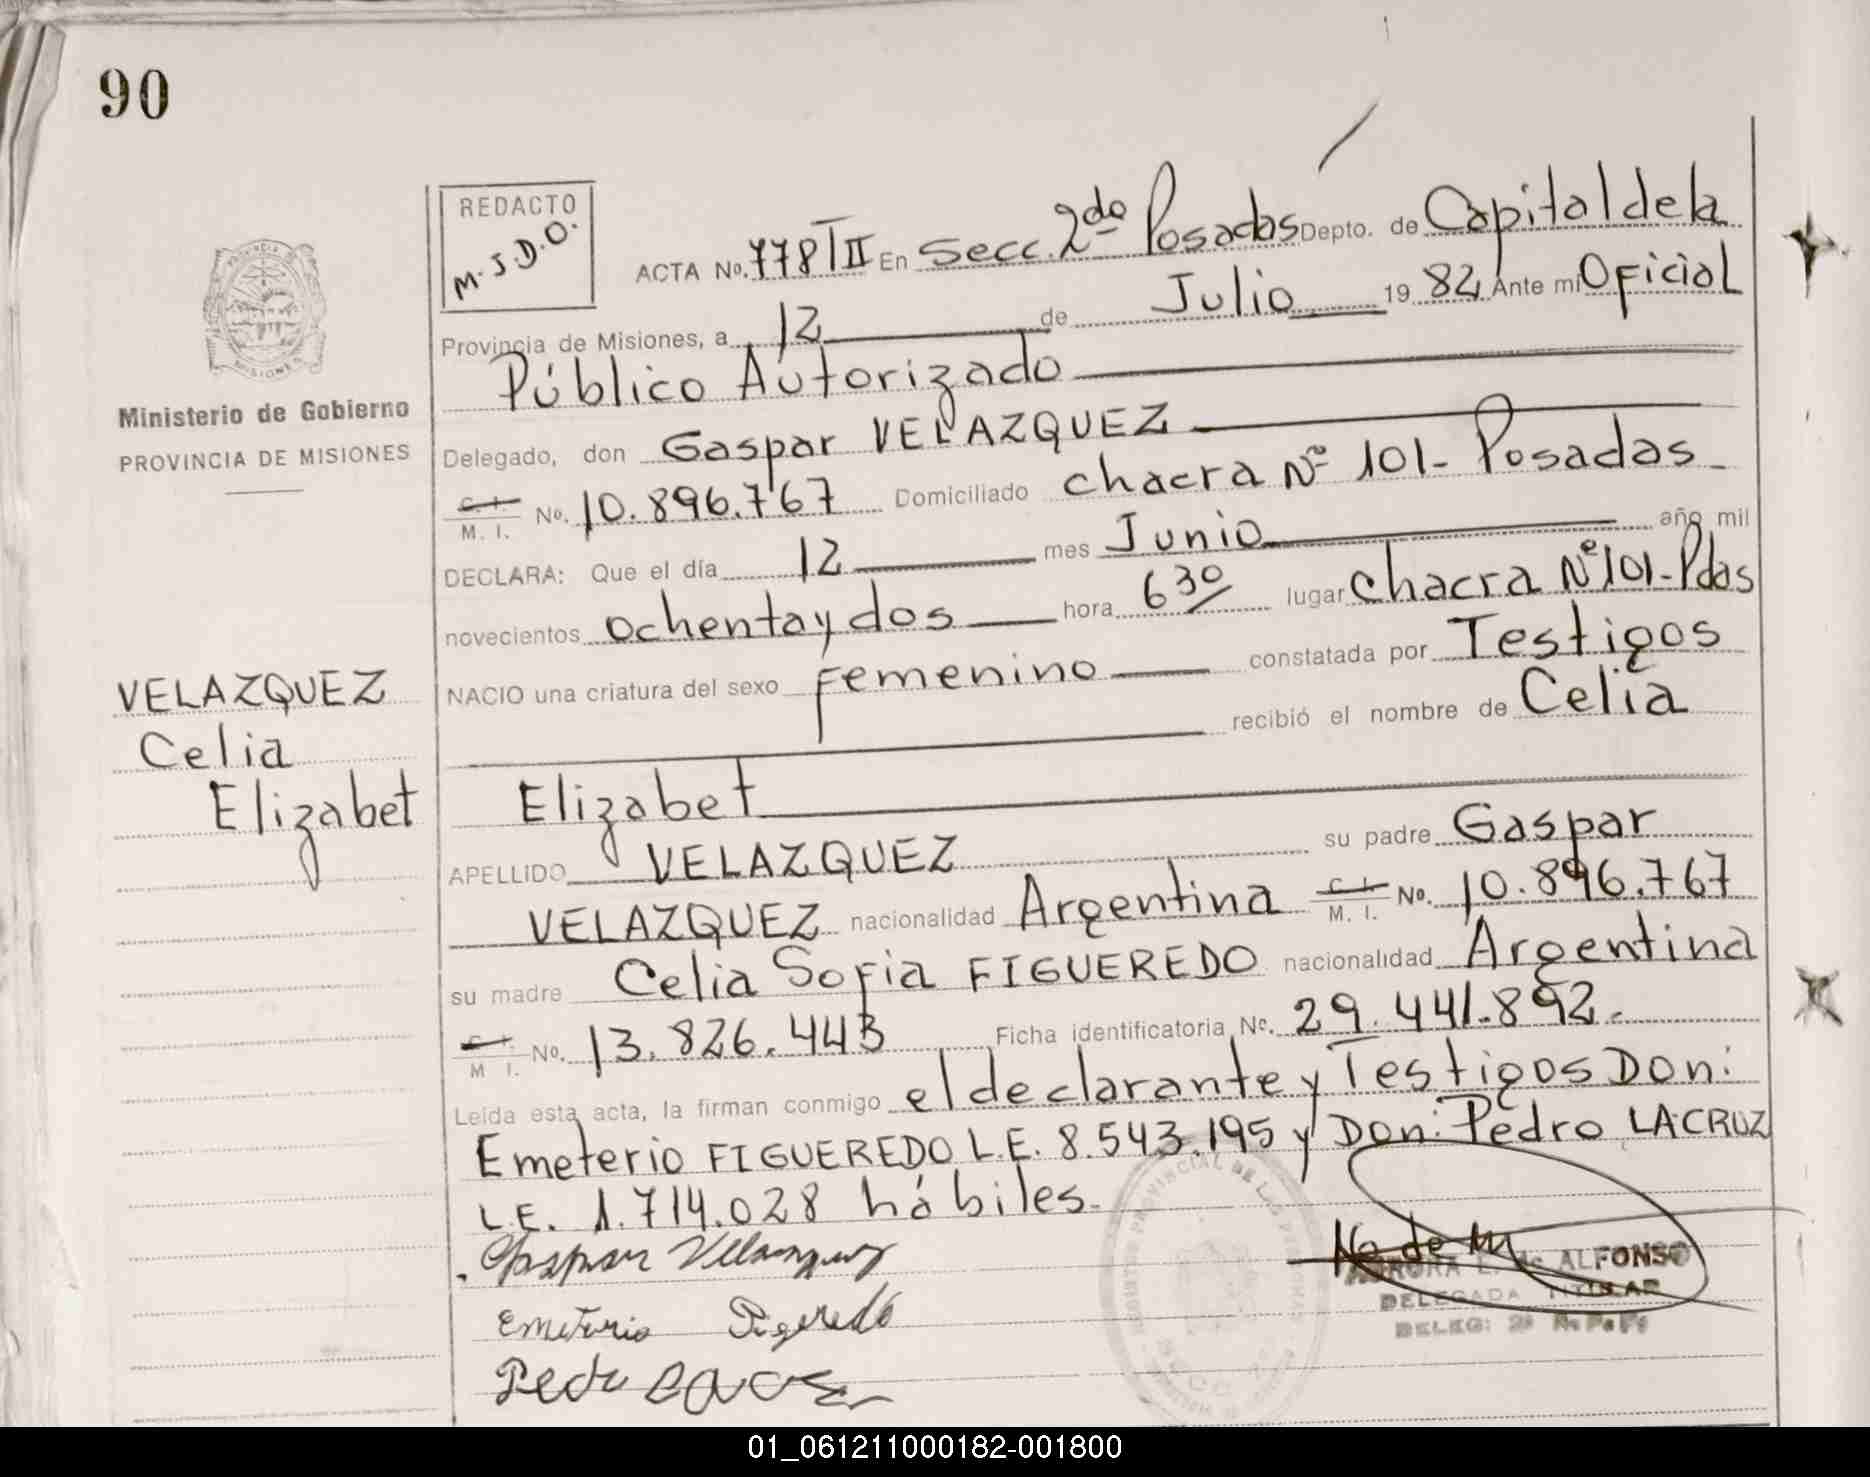 90
REDACTO
M.J.D.O.
ACTA No. 778/II En Secc. 2do Posadas Depto. de Capital de la
Provincia de Misiones, a 12 de Julio 19 82 Ante mi Oficial
Público Autorizado
PROVINCIA DE MISIONES
Ministerio de Gobierno
PROVINCIA DE MISIONES
Delegado, don Gaspar VELAZQUEZ
C. I. M. I. No. 10.896.767 Domiciliado chacra Nº 101- Posadas
DECLARA: Que el día 12 mes Junio año mil
novecientos ochenta y dos hora 6 30 lugar Chacra Nº 101- Pdas
NACIO una criatura del sexo Femenino constatada por Testigos
recibió el nombre de Celia
Elizabet
VELAZQUEZ
Celia
Elizabet
APELLIDO VELAZQUEZ su padre Gaspar
VELAZQUEZ nacionalidad Argentina C. I. M. I. No. 10.896.767
su madre Celia Sofia FIGUEREDO nacionalidad Argentina
C. I. M. I. No. 13.826.443 Ficha identificatoria No. 29.441.892.
Leída esta acta, la firman conmigo el declarante y Testigos Don:
Emeterio FIGUEREDO L.E. 8.543.195 y Don: Pedro LACRUZ
L.E. 1.714.028 hábiles.
Gaspar Velazquez
Emeterio Figeredo
Pedro
ALFONSO
DELEGADA TITULAR
01_061211000182-001800